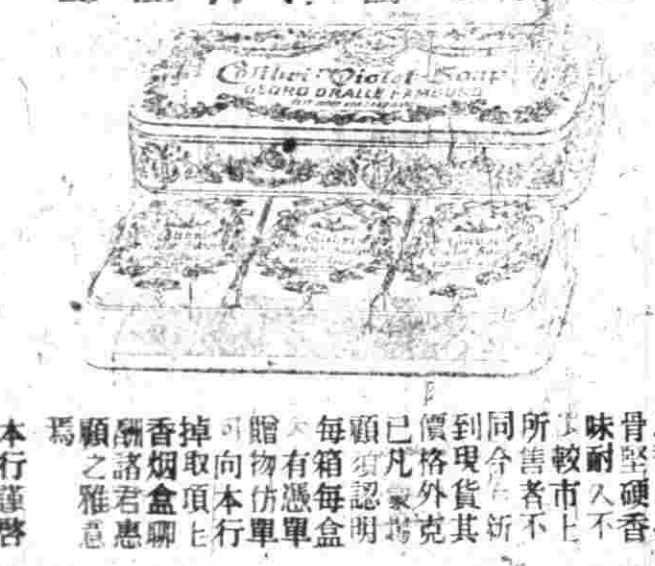 Colibri Violet Soap
GEORG DRALLE HAMBURG
骨堅硬香
味耐久不
較市上
所售者不
同今新
到現貨其
價格外克
已凡蒙賜
顧須認明
每箱每盒
有憑單
贈物仿單
可向本行
掉取頂上
香烟盒聊
酬諸君惠
顧之雅意
焉
本行謹啓